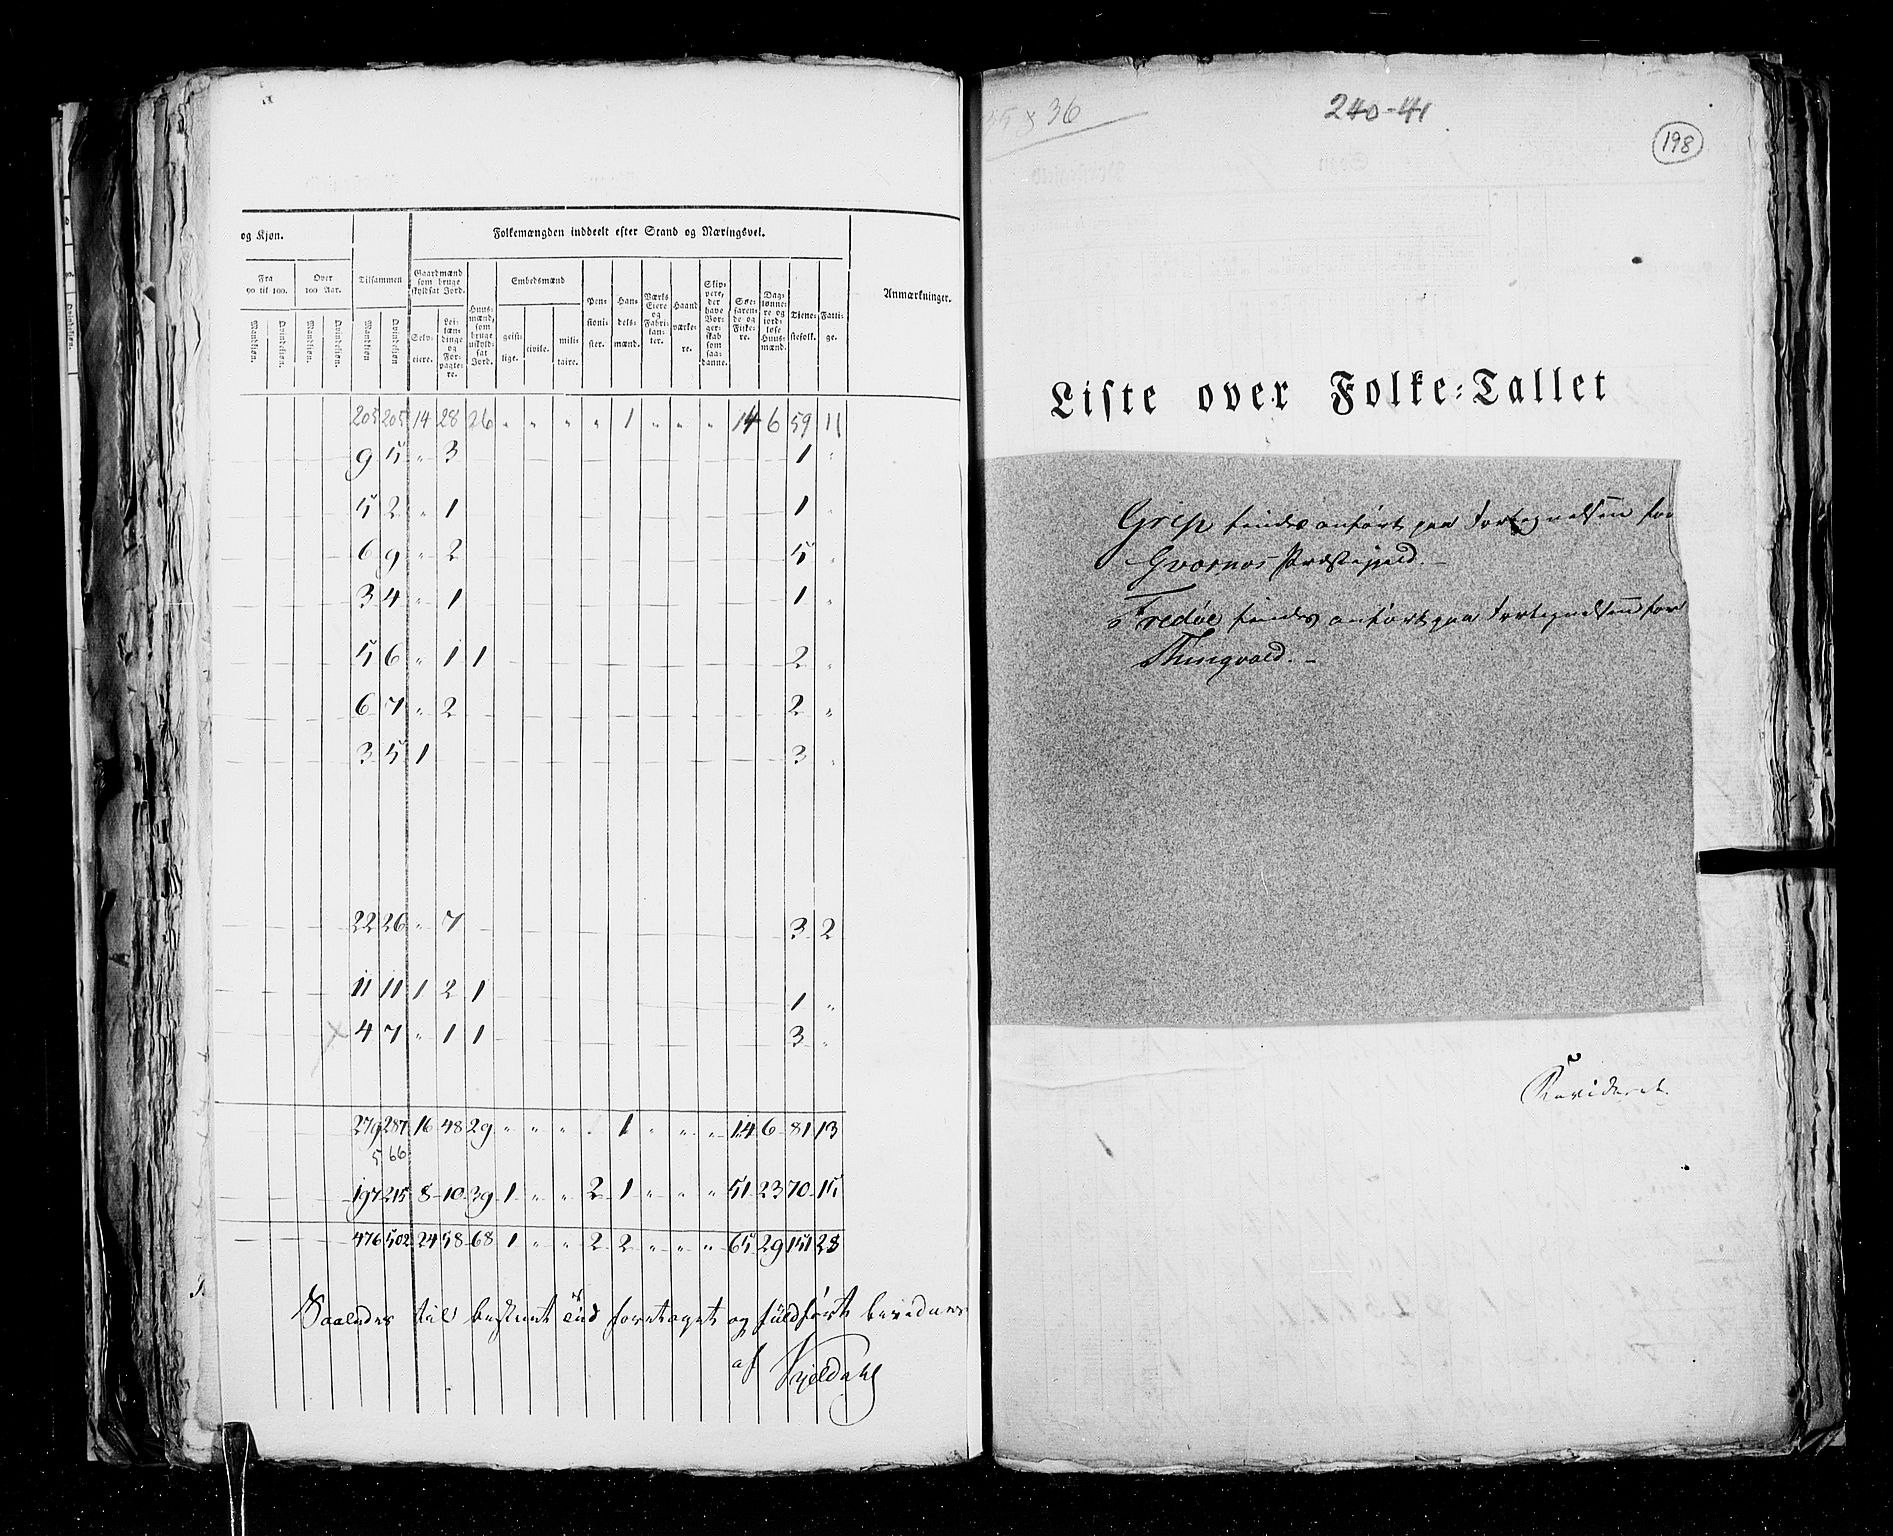 og Kjøn.
Folkemængden inddeelt efter Stand og Næringsvei.
Anmærkninger.
Fra 90 til 100.
Over 100 Aar.
Tilsammen
Gaardmænd som bruge skyldsat Jord.
Huusmænd, som bruge uskyldsat Jord.
Embedsmænd
Pensionister.
Handelsmænd.
Værks Eiere og Fabrikanter.
Haandværkere.
Skippere, der have Borgerskab som saadanne.
Søefarende og Fiskere.
Daglønnere og jordløse Huusmænd.
Tjenestefolk.
Fattige.
Mandkjøn. Qvindekjøn. Mandkjøn. Qvindekjøn. Mandkjøn Qvindekjøn
Selveiere. Leilændinge og Forpagtere. geistlige. civile. militaire.
205 205 14 28 26 " " " " 1 " " " 14 6 59 11
9 5 " 3 1 "
5 2 " 1 1 "
6 9 " 2 5 "
3 4 " 1 1 "
5 6 " 1 1 2 "
6 7 " 2 2 "
3 5 1 3 "
22 26 " 7 3 2
11 11 1 2 1 1 "
4 7 " 1 1 3 "
279 287 16 48 29 " " " " 1 " " " 14 6 81 13
566
197 215 8 10 39 1 " " 2 1 " " " 51 23 70 15
476 502 24 58 68 1 " " 2 2 " " " 65 29 151 28
Saaledes til bestemt Tid foretaget og fuldført bevidnes
af
36
240-41
198
Liste over Folke-Tallet
Grip findes anført paa Fortegnelsen for
Qværnes Præstegjeld.
Fredøe findes anført paa Fortegnelsen for
Thingvold.
Revideret.